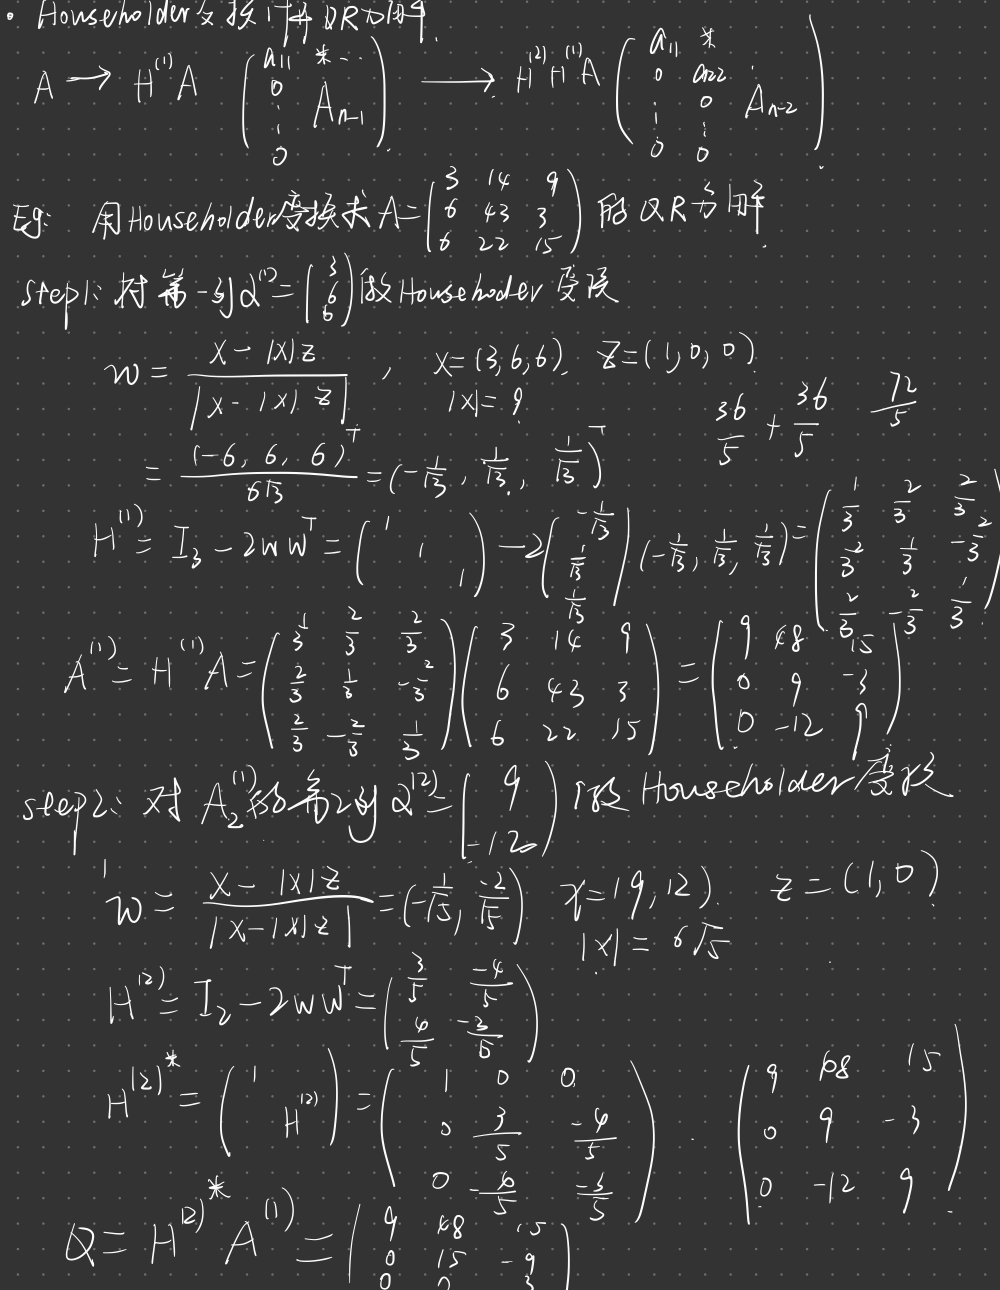 · Householder变换计算QR分解
A → H^{(1)}A \begin{pmatrix} a_{11} & * \cdots \\ 0 & \\ \vdots & A_{n-1} \\ 0 & \end{pmatrix} → H^{(2)}H^{(1)}A \begin{pmatrix} a_{11} & * & \\ 0 & a_{22} & \\ \vdots & 0 & A_{n-2} \\ 0 & 0 & \end{pmatrix}
Eg: 用Householder变换求A=\begin{pmatrix} 3 & 14 & 9 \\ 6 & 43 & 3 \\ 6 & 22 & 15 \end{pmatrix} 的QR分解
step1: 对第一列α^{(1)}=\begin{pmatrix} 3 \\ 6 \\ 6 \end{pmatrix}做Househoder变换
w = \frac{x-|x|z}{|x-|x|z|}, x=(3,6,6) z=(1,0,0)
|x|=9 \frac{36}{5}+\frac{36}{5} \frac{72}{5}
= \frac{(-6,6,6)^T}{6\sqrt{3}} = (-\frac{1}{\sqrt{3}}, \frac{1}{\sqrt{3}}, \frac{1}{\sqrt{3}})^T
H^{(1)} = I_3-2ww^T = \begin{pmatrix} 1 & & \\ & 1 & \\ & & 1 \end{pmatrix} -2\begin{pmatrix} -\frac{1}{\sqrt{3}} \\ \frac{1}{\sqrt{3}} \\ \frac{1}{\sqrt{3}} \end{pmatrix}(-\frac{1}{\sqrt{3}}, \frac{1}{\sqrt{3}}, \frac{1}{\sqrt{3}}) = \begin{pmatrix} \frac{1}{3} & \frac{2}{3} & \frac{2}{3} \\ \frac{2}{3} & \frac{1}{3} & -\frac{2}{3} \\ \frac{2}{3} & -\frac{2}{3} & \frac{1}{3} \end{pmatrix}
A^{(1)} = H^{(1)}A = \begin{pmatrix} \frac{1}{3} & \frac{2}{3} & \frac{2}{3} \\ \frac{2}{3} & \frac{1}{3} & -\frac{2}{3} \\ \frac{2}{3} & -\frac{2}{3} & \frac{1}{3} \end{pmatrix}\begin{pmatrix} 3 & 14 & 9 \\ 6 & 43 & 3 \\ 6 & 22 & 15 \end{pmatrix} = \begin{pmatrix} 9 & 48 & 15 \\ 0 & 9 & -3 \\ 0 & -12 & 9 \end{pmatrix}
step2: 对A_2^{(1)}的第2列α^{(2)}=\begin{pmatrix} 9 \\ -12 \end{pmatrix} 做Householder变换
w = \frac{x-|x|z}{|x-|x|z|} = (-\frac{1}{\sqrt{5}}, \frac{-2}{\sqrt{5}}) x=(9,12) z=(1,0)
|x|=6\sqrt{5}
H^{(2)} = I_2-2ww^T = \begin{pmatrix} \frac{3}{5} & \frac{-4}{5} \\ \frac{4}{5} & \frac{-3}{5} \end{pmatrix}
H^{(2)*} = \begin{pmatrix} 1 & \\ & H^{(2)} \end{pmatrix} = \begin{pmatrix} 1 & 0 & 0 \\ 0 & \frac{3}{5} & \frac{-4}{5} \\ 0 & -\frac{4}{5} & \frac{-3}{5} \end{pmatrix} · \begin{pmatrix} 9 & 68 & 15 \\ 0 & 9 & -3 \\ 0 & -12 & 9 \end{pmatrix}
Q = H^{(2)*}A^{(1)} = \begin{pmatrix} 9 & 48 & 15 \\ 0 & 15 & -9 \\ 0 & 0 & 3 \end{pmatrix}